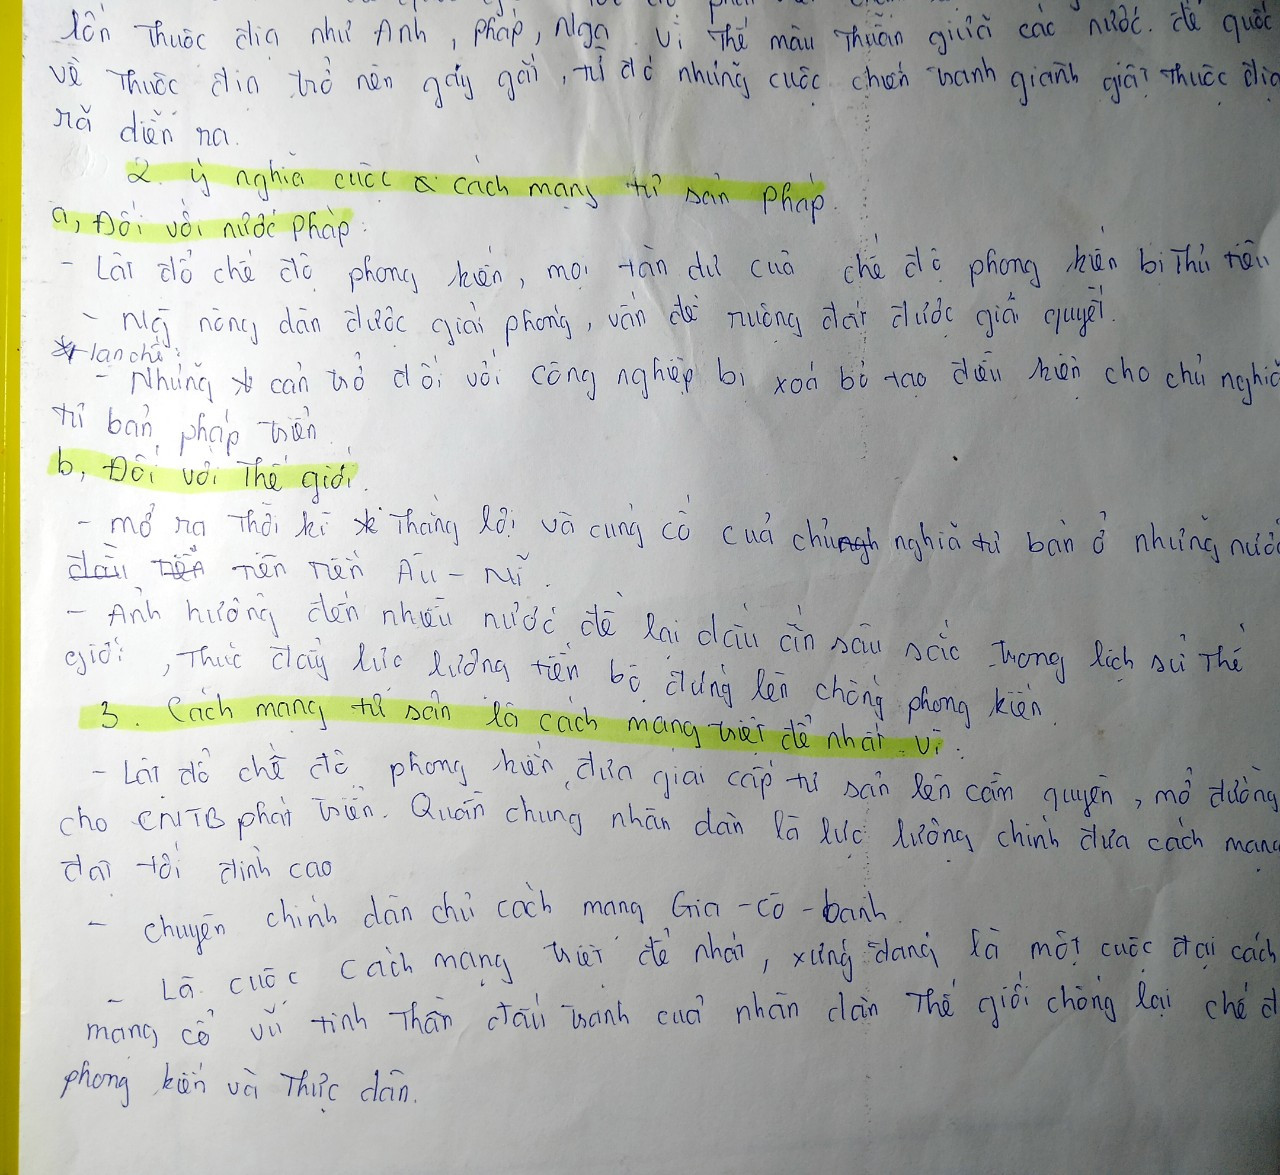 lớn thuộc địa như Anh, Pháp, Nga. Vì thế mâu thuẫn giữa các nước đế quốc
về thuộc địa trở nên gáy gắt, từ đó những cuộc chiến tranh giành giật thuộc địa
rã diễn ra.
2. Ý nghĩa cuộc cách mạng tư sản Pháp
a, Đối với nước Pháp:
- Lật đổ chế độ phong kiến, mọi tàn dư của chế độ phong kiến bị thủ tiêu
- nông dân được giải phóng, vấn đề ruộng đất được giả quyết.
* Hạn chế:
- Những cản trở đối với công nghiệp bị xoá bỏ tạo điều kiện cho chủ nghĩa
tư bản pháp triển.
b, Đối với thế giới.
- mở ra thời kì thắng lợi và cung cố của chủ nghĩa tư bản ở những nước
tiên tiến Âu - Mĩ.
- Ảnh hưởng đến nhiều nước để lại dấu ấn sâu sắc trong lịch sử thế
giới, thúc đẩy lực lượng tiến bộ đứng lên chống phong kiến.
3. Cách mạng tư sản là cách mạng triệt để nhất vì:
- Lật đổ chế độ phong kiến, đưa giai cấp tư sản lên cầm quyền, mở đường
cho CNTB phát triển. Quần chúng nhân dân là lực lượng chính đưa cách mạng
đạt tới đỉnh cao
- Chuyên chính dân chủ cách mạng Gia-cô-banh.
- Là cuộc cách mạng triệt để nhất, xứng đáng là một cuộc đại cách
mạng cổ vũ tinh thần đấu tranh của nhân dân thế giới chống lại chế đ
phong kiến và thực dân.